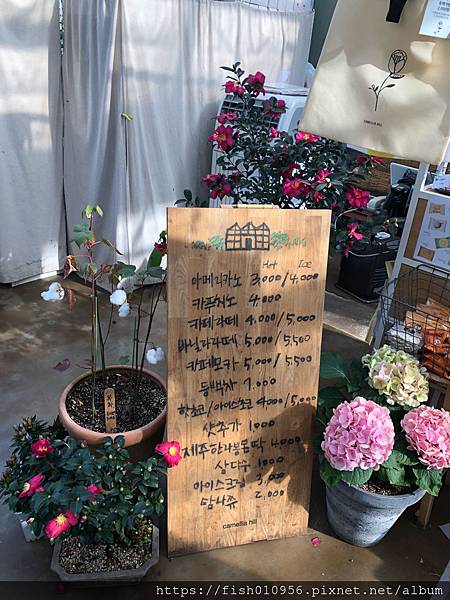 Hot Ice
아메리카노 3,000/4,000
카푸치노 4,000
카페라떼 4,000/5,000
바닐라라떼 5,000/5,500
카페모카 5,000/5,500
동백차 7,000
핫초코/아이스초코 4,000/5,000
삿초가 1,000
제주한라봉 4,000
삼다수 1,000
아이스크림 3,000
탐나쮸 2,000
camellia hill
CAMELLIA HILL
https://fish010956.pixnet.net/album